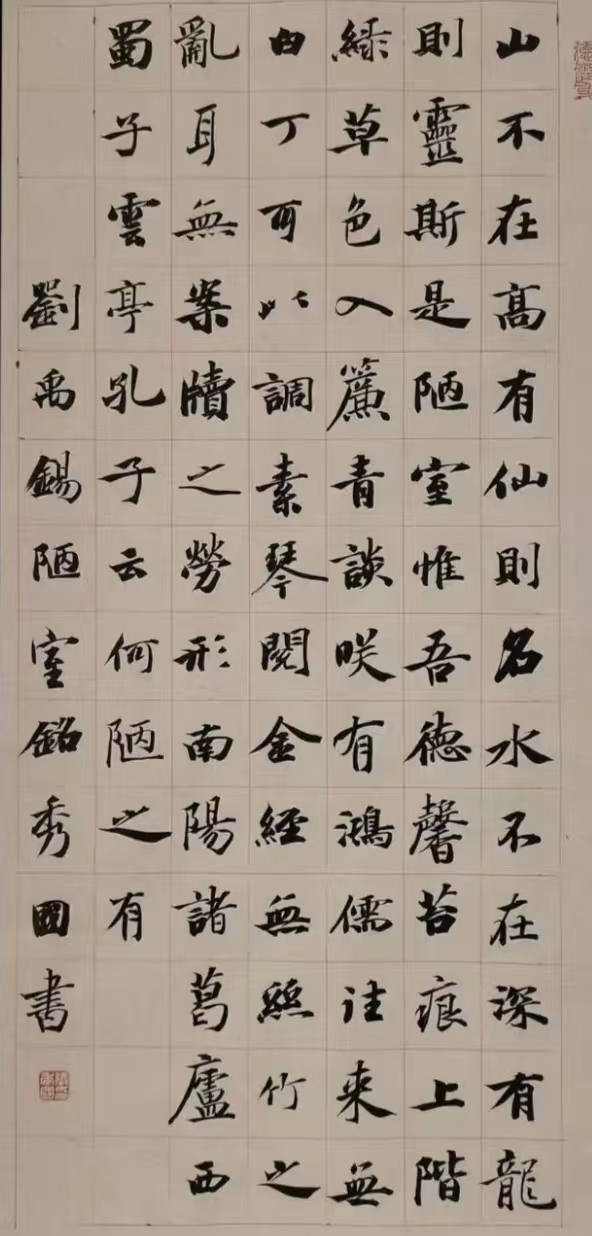 山不在髙有仙則名水不在深有龍
則靈斯是陋室惟吾德馨苔痕上階
綠草色入簾青談咲有鴻儒往來無
白丁可以調素琴閱金經無絲竹之
亂耳無案牘之勞形南陽諸葛廬西
蜀子雲亭孔子云何陋之有
劉禹錫陋室銘秀國書